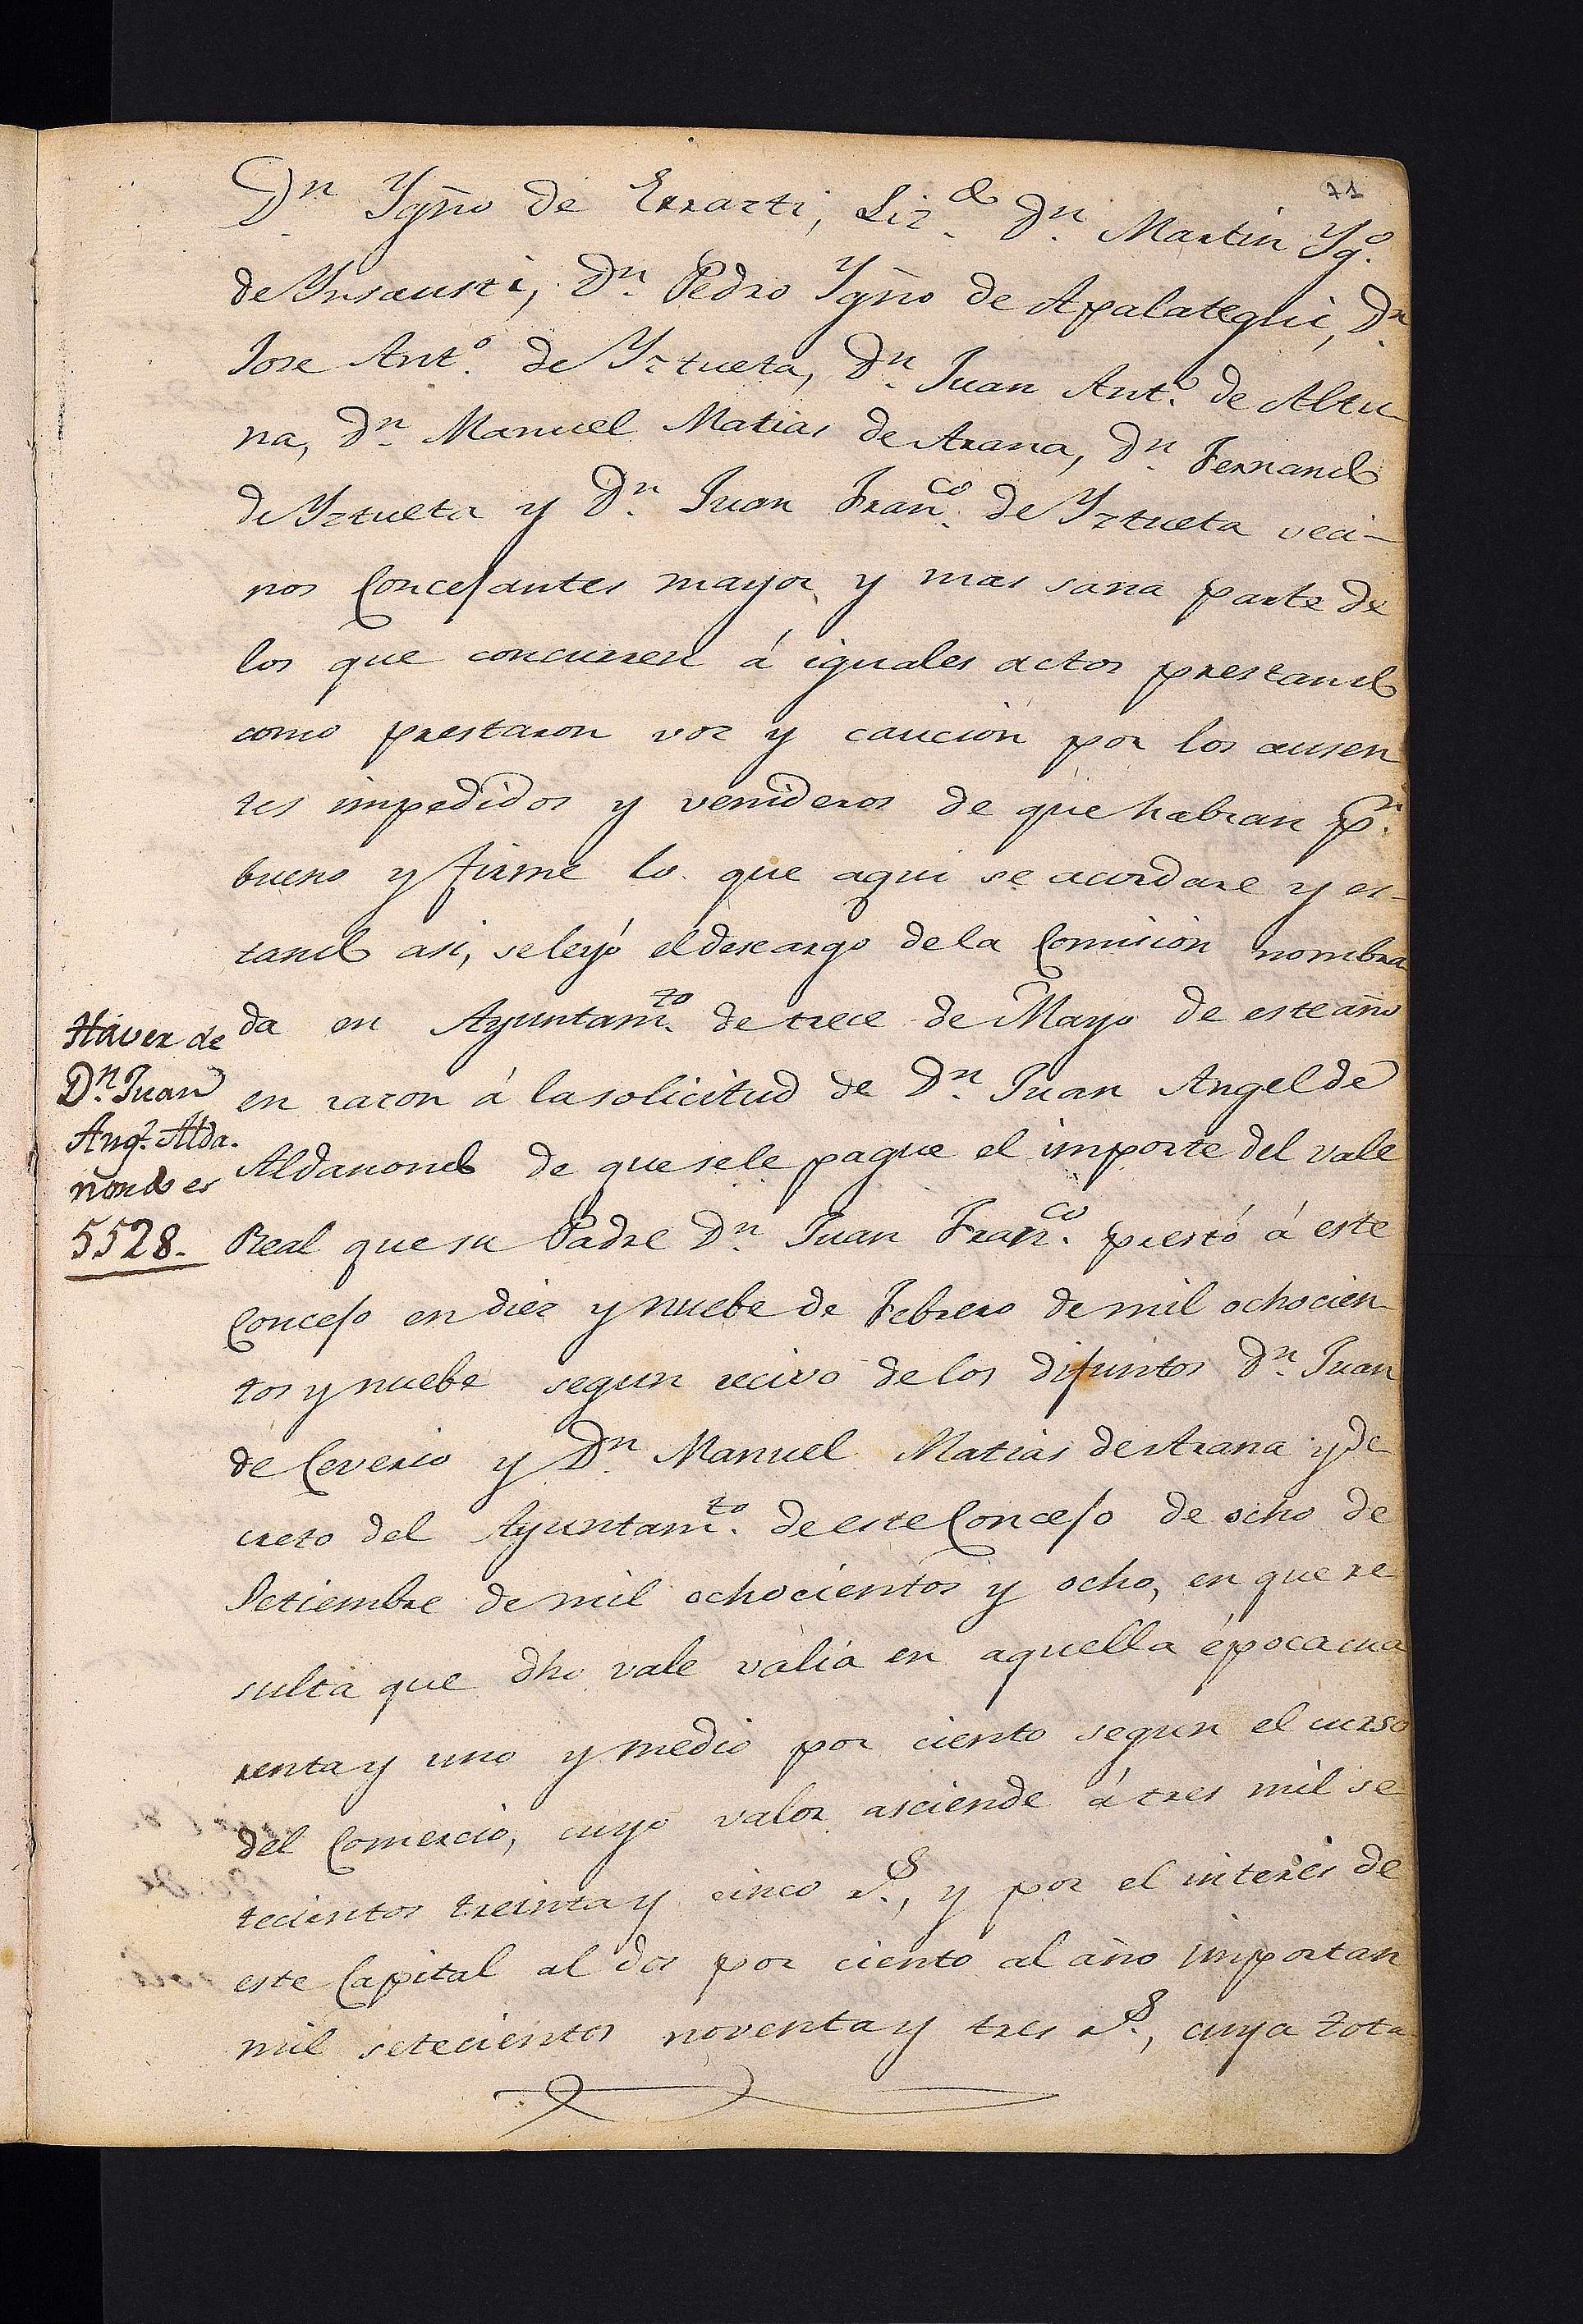 71
Dn. Ygño de Errazti, Lizdo. Dn. Martin Ygo.
de Ynsausti, Dn. Pedro Ygño de Apalategui, Dn.
Jose Anto. de Yztueta, Dn. Juan Anto. de Altu-
na, Dn. Manuel Matias de Arana, Dn. Fernando
de Yztueta y Dn. Juan Franco. de Yztueta veci-
nos Concejantes mayor y mas sana parte de
los que concurren á iguales actos prestando
como prestaron voz y caución por los ausen
tes impedidos y venideros de que habran pr.
bueno y firme lo que aqui se acordare y es-
tando asi, se leyó el descargo de la Comisión nombra
da en Ayuntamto. de trece de Mayo de este año
en razon á la solicitud de Dn. Juan Angel de
Aldanondo de que se le pague el importe del vale
Real que su Padre Dn. Juan Franco. prestó á este
Concejo en diez y nuebe de Febrero de mil ochocien-
tos y nuebe segun recivo de los difuntos Dn. Juan
de Ceverio y Dn. Manuel Matias de Arana y de-
creto del Ayuntamto. de este Concejo de ocho de
Setiembre de mil ochocientos y ocho, en que re
sulta que dho vale valia en aquella época cua
renta y uno y medio por ciento segun el curso
del Comercio, cuyo valor asciende á tres mil se
tecientos treinta y cinco rs., y por el interés de
este Capital al dos por ciento al año importan
mil setecientos noventa y tres rs., cuya tota
Haver de
Dn. Juan
Angl. Alda-
nondo es
5528.